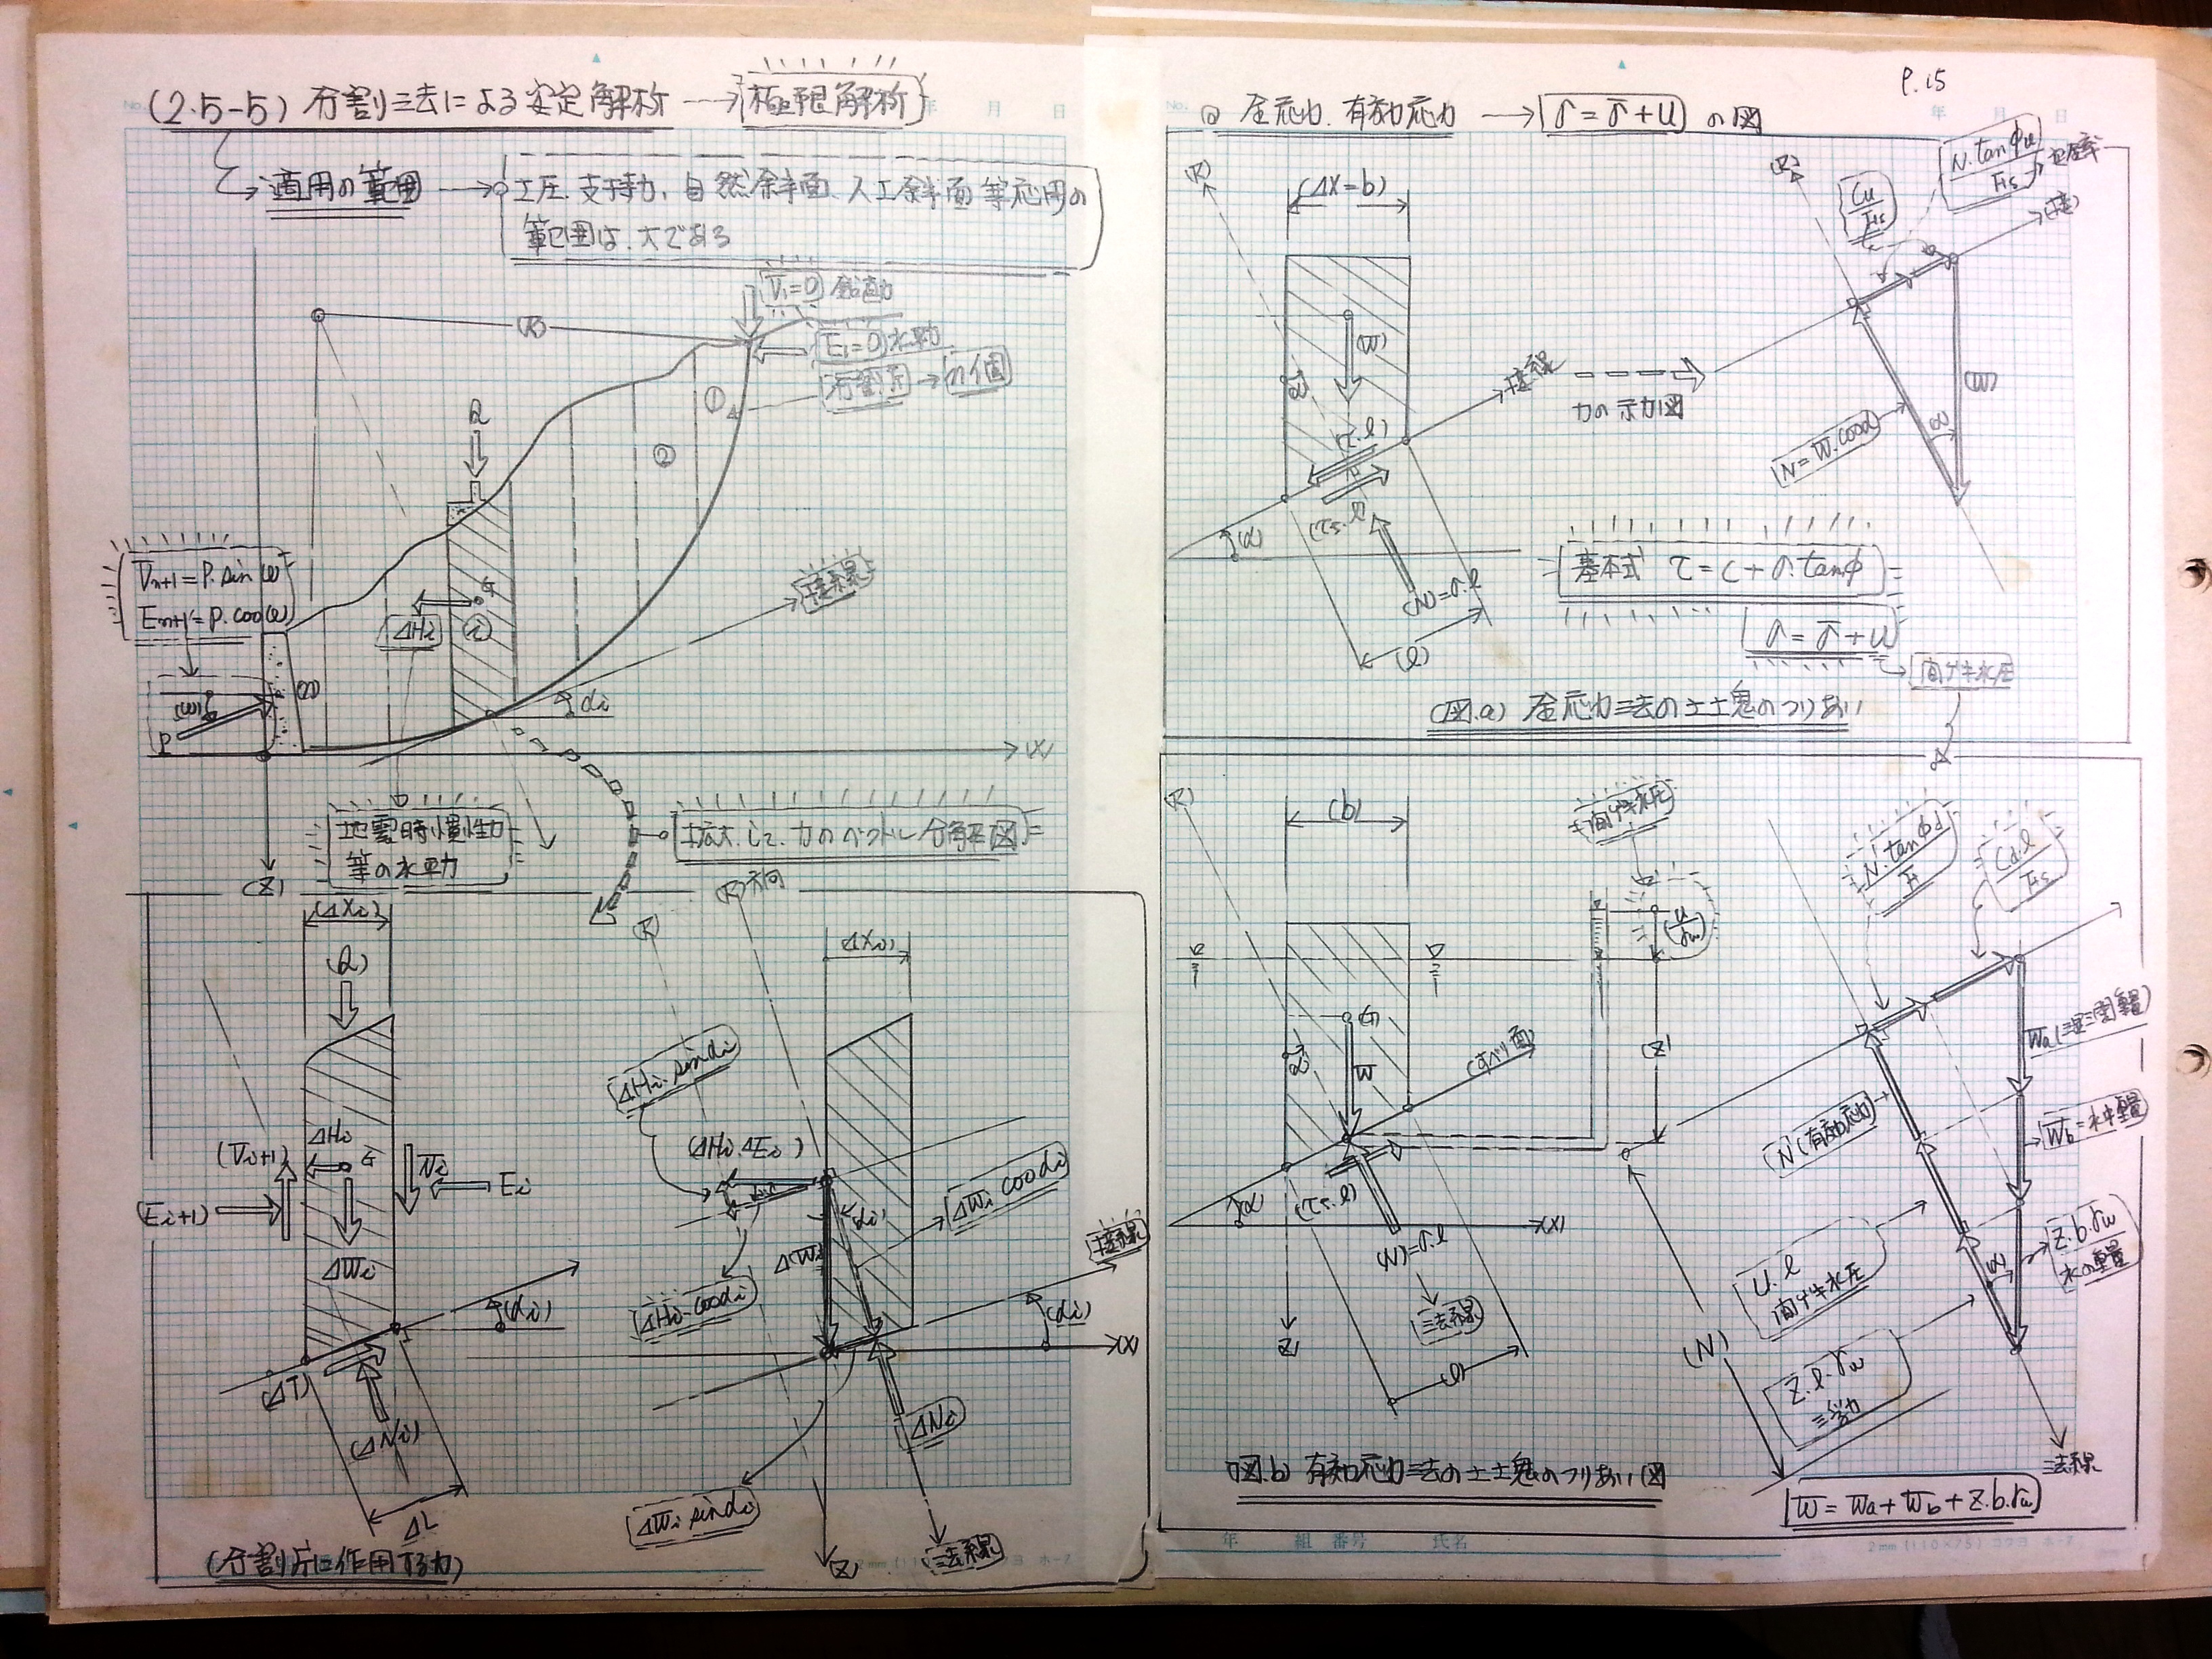 (2.5-5) 分割法による安定解析 → 極限解析
適用の範囲 → 土圧.支持力.自然斜面.人工斜面等応用の
範囲は.大である
V₁=0 鉛直力
E₁=0 水平力
分割片→n個
(R)
①
②
Q
G
ΔHi
(i)
Vn+1=P.sin(ω)
En+1=P.cos(ω)
(ω)
P
(n)
接線
αi
(X)
(Z)
地震時慣性力
等の水平力
拡大して.力のベクトル分解図
(ΔXi)
(Q)
ΔHi
G
(Vi+1)
(Ei+1)
Vi
Ei
ΔWi
(αi)
(ΔT)
(ΔNi)
ΔL
(分割片に作用する力)
(R)
(R)方向
ΔXi
ΔHi.sinαi
(ΔHi.ΔEi)
(αi)
ΔWi cosαi
ΔWi
ΔHi.cosαi
接線
(αi)
(X)
ΔNi
ΔWi sinαi
(Z)
法線
P.15
全応力.有効応力 → σ=σ̄+u の図
(R)
(ΔX=b)
(W)
α
(τ.l)
(τs.l)
(α)
(N)=σ.l
(l)
接線
力の示力図
(R)
Cu
Fs
N.tanφu
Fs
(接)
(W)
α
N=W.cosα
基本式 τ=c+σ.tanφ
σ=σ̄+u
間ゲキ水圧
(図.a) 全応力法の土塊のつりあい
(R)
(b)
間ゲキ水圧
u
γw
G
W
α
(Z)
(すべり面)
(α)
(τs.l)
(X)
(N)=σ.l
法線
Z
(l)
N.tanφd
F
Cd.l
Fs
Wa(湿潤重量)
Wb=水中重量
N(有効応力)
Z.b.γw
水の重量
(α)
U.l
間ゲキ水圧
(N)
Z.l.γw
浮力
法線
(図.b) 有効応力法の土塊のつりあい図
W=Wa+Wb+Z.b.γw
年 組 番号 氏名